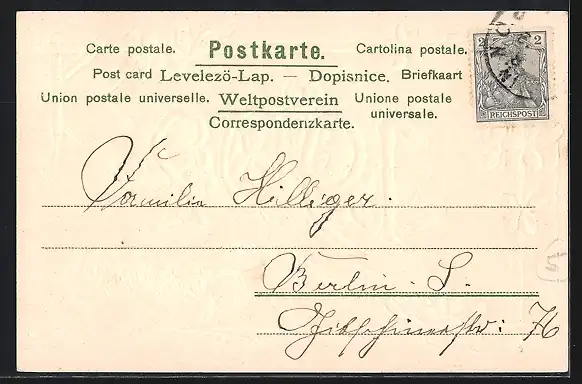 Carte postale. Postkarte. Cartolina postale.
Post card Levelezö-Lap. — Dopisnice. Briefkaart
Union postale universelle. Weltpostverein Unione postale universale.
Correspondenzkarte.
2 2
REICHSPOST
Familie Hilliger.
Berlin. S.
76